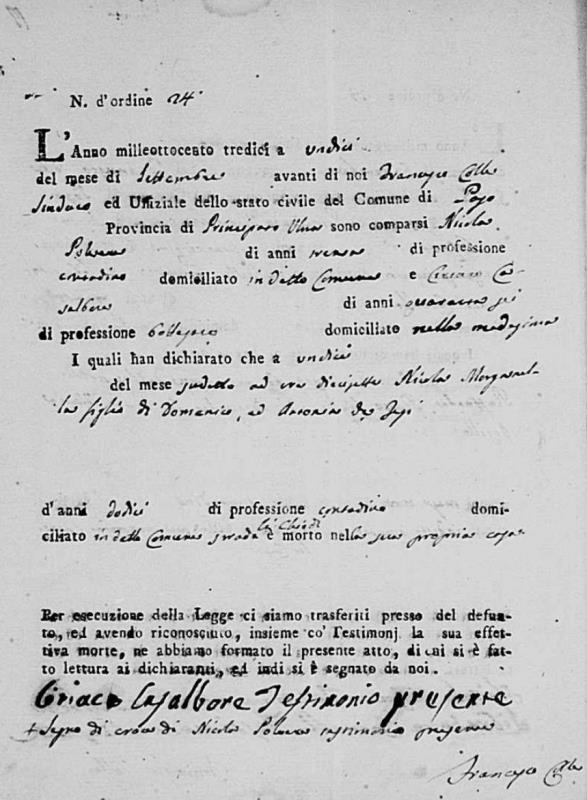 N. d'ordine 24
L'Anno milleottocento tredici a undici
del mese di Settembre avanti di noi Francesco Colle
Sindaco ed Uffiziale dello stato civile del Comune di
Provincia di Principato Ultra sono comparsi Nicola
di anni di professione
contadino domiciliato in detto Comune e Ciriaco Ca-
salbore di anni quaranta sei
di professione bottegaro domiciliato nella medesima
I quali han dichiarato che a undici
del mese sudetto ad ore diecisette Nicola Morganel-
la figlio di Domenico, ed Antonia de
d'anni dodici di professione contadino domi-
ciliato in detto Comune strada è morto nella sua propria casa
Per esecuzione della Legge ci siamo trasferiti presso del defun-
to, ed avendo riconosciuto, insieme co' Testimonj la sua effet-
tiva morte, ne abbiamo formato il presente atto, di cui si è fat-
to lettura ai dichiaranti, ed indi si è segnato da noi.
Ciriaco Casalbore Testimonio presente
+ Segno di croce di Nicola testimonio presente
Francesco Colle